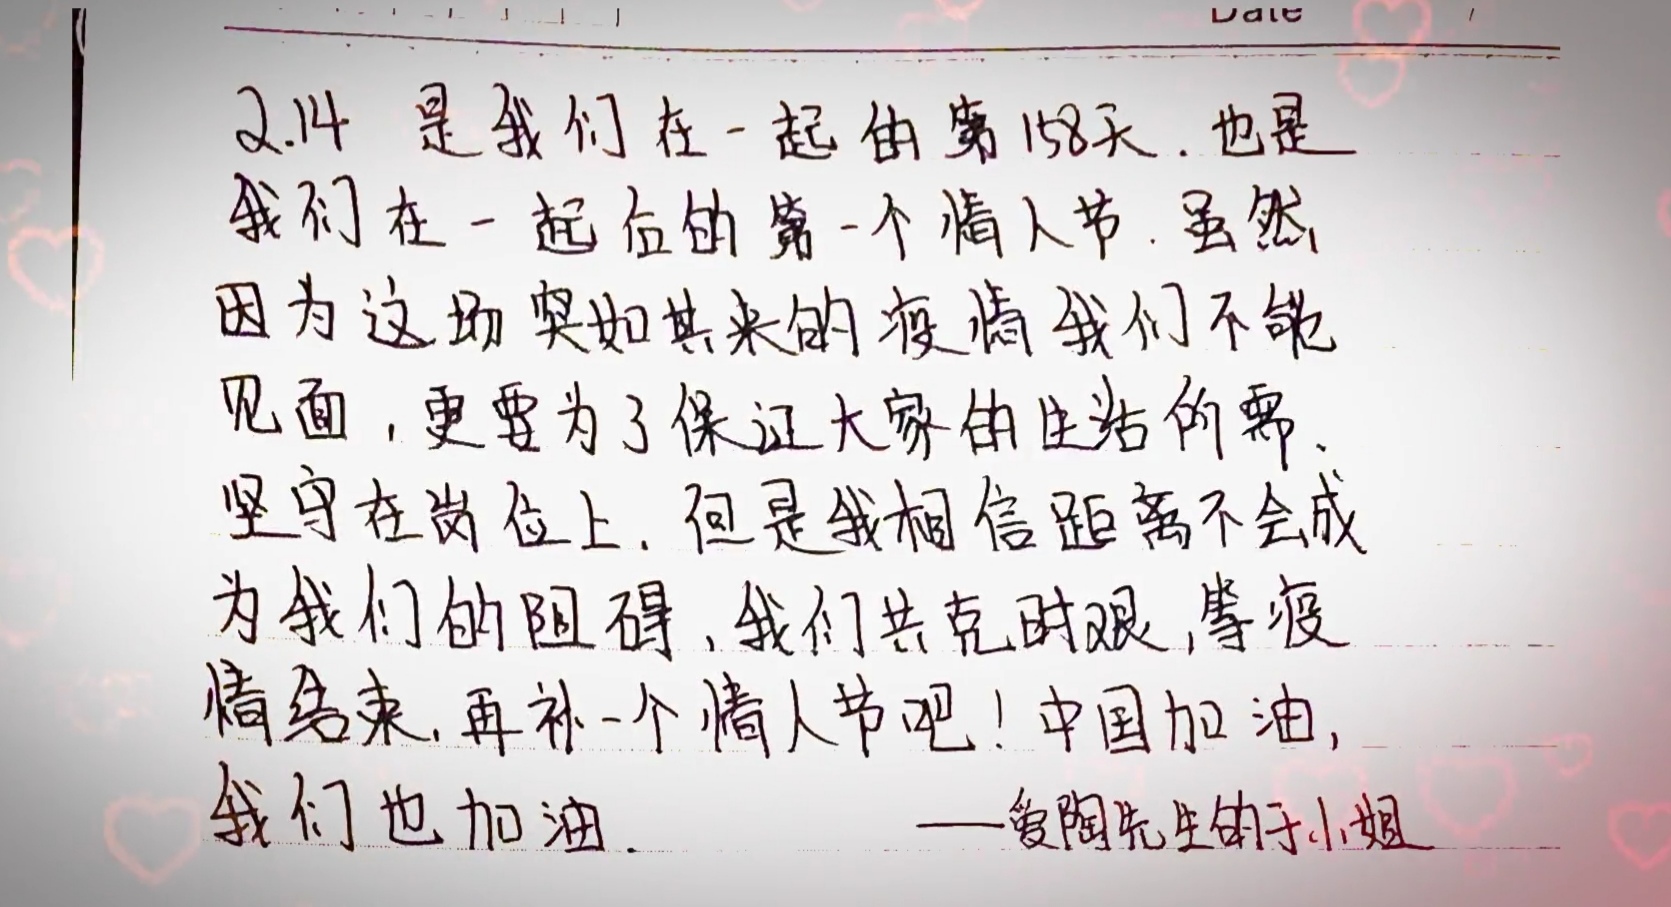 Date
2.14 是我们在一起的第158天.也是
我们在一起后的第一个情人节.虽然
因为这场突如其来的疫情我们不能
见面,更要为了保证大家的生活所需、
坚守在岗位上.但是我相信距离不会成
为我们的阻碍,我们共克时艰,等疫
情结束,再补一个情人节吧!中国加油,
我们也加油.
——爱陶先生的于小姐